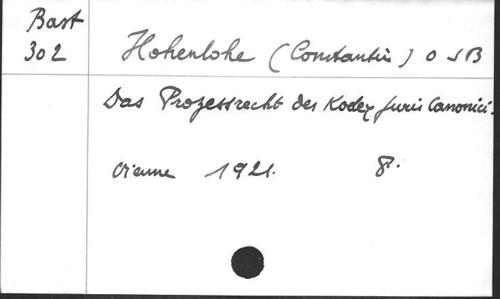 Bast
302
Hohenlohe (Constantin) O S B
Das Prozessrecht des Kodex Juris Canonici.
Vienne 1921. 8°.